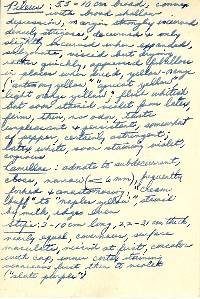 Pileus: 5.5-10 cm broad, convex
with broad shallow
depression, margin strongly incurved
densely strigose, decurved & only
slightly incurved when expanded,
azonate, viscid but drying
rather quickly, appressed fibrillose
in places when dried, yellow-orange
"antimony yellow," "apricot yellow"
"light ochre yellow," flesh whitish
but soon stained violet from latex,
firm, thin, no odor, taste
unpleasant & persistent, somewhat
of pepper, certainly astringent;
latex white, soon staining violet,
copious
Lamellae: adnate to subdecurrent,
close, narrow (6 mm), frequently
forked & anastomosing, "cream
buff" to "naples yellow," stained
by milk, edges even
Stipe: 3-10 cm long, 2.2-3 cm thick,
nearly equal, cavernous, surface
maculate, viscid at first, concolor
with cap, inner cortex staining
first then to violet
("slate purple")